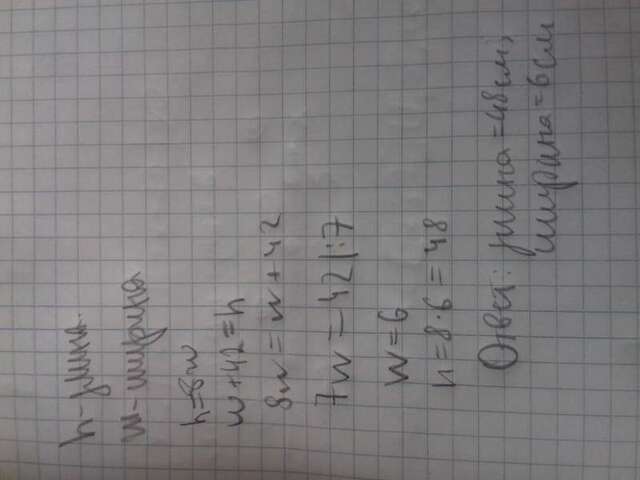 h-длина.
w-ширина
h=8w
w+42=h
8w=w+42
7w=42|:7
w=6
h=8·6=48
Ответ: длина=48см;
ширина=6см